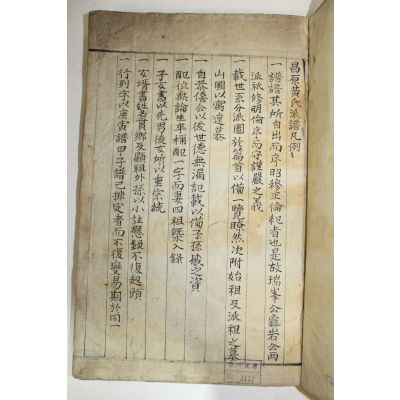 昌原黃氏派譜凡例
一譜譜其所自出而序昭穆正倫紀者也是故瑞峯公龜岩公兩
派祇修明倫序而守謹嚴之義
一載世系分派圖於篇首以備一覽瞭然次附始祖及派祖之墓
山圖以寓遠慕
一自恭僖公以後世德無漏記載以備子孫感之資
一配位無論生卒稱配一字而妻四祖槩入錄
一子女書以先男後女所以重宗統
一女壻書姓名貫鄕及顯祖外孫以小註懸錄不復起頭
一行列字以庚寅譜甲子譜已排定者而不復變易期於同一